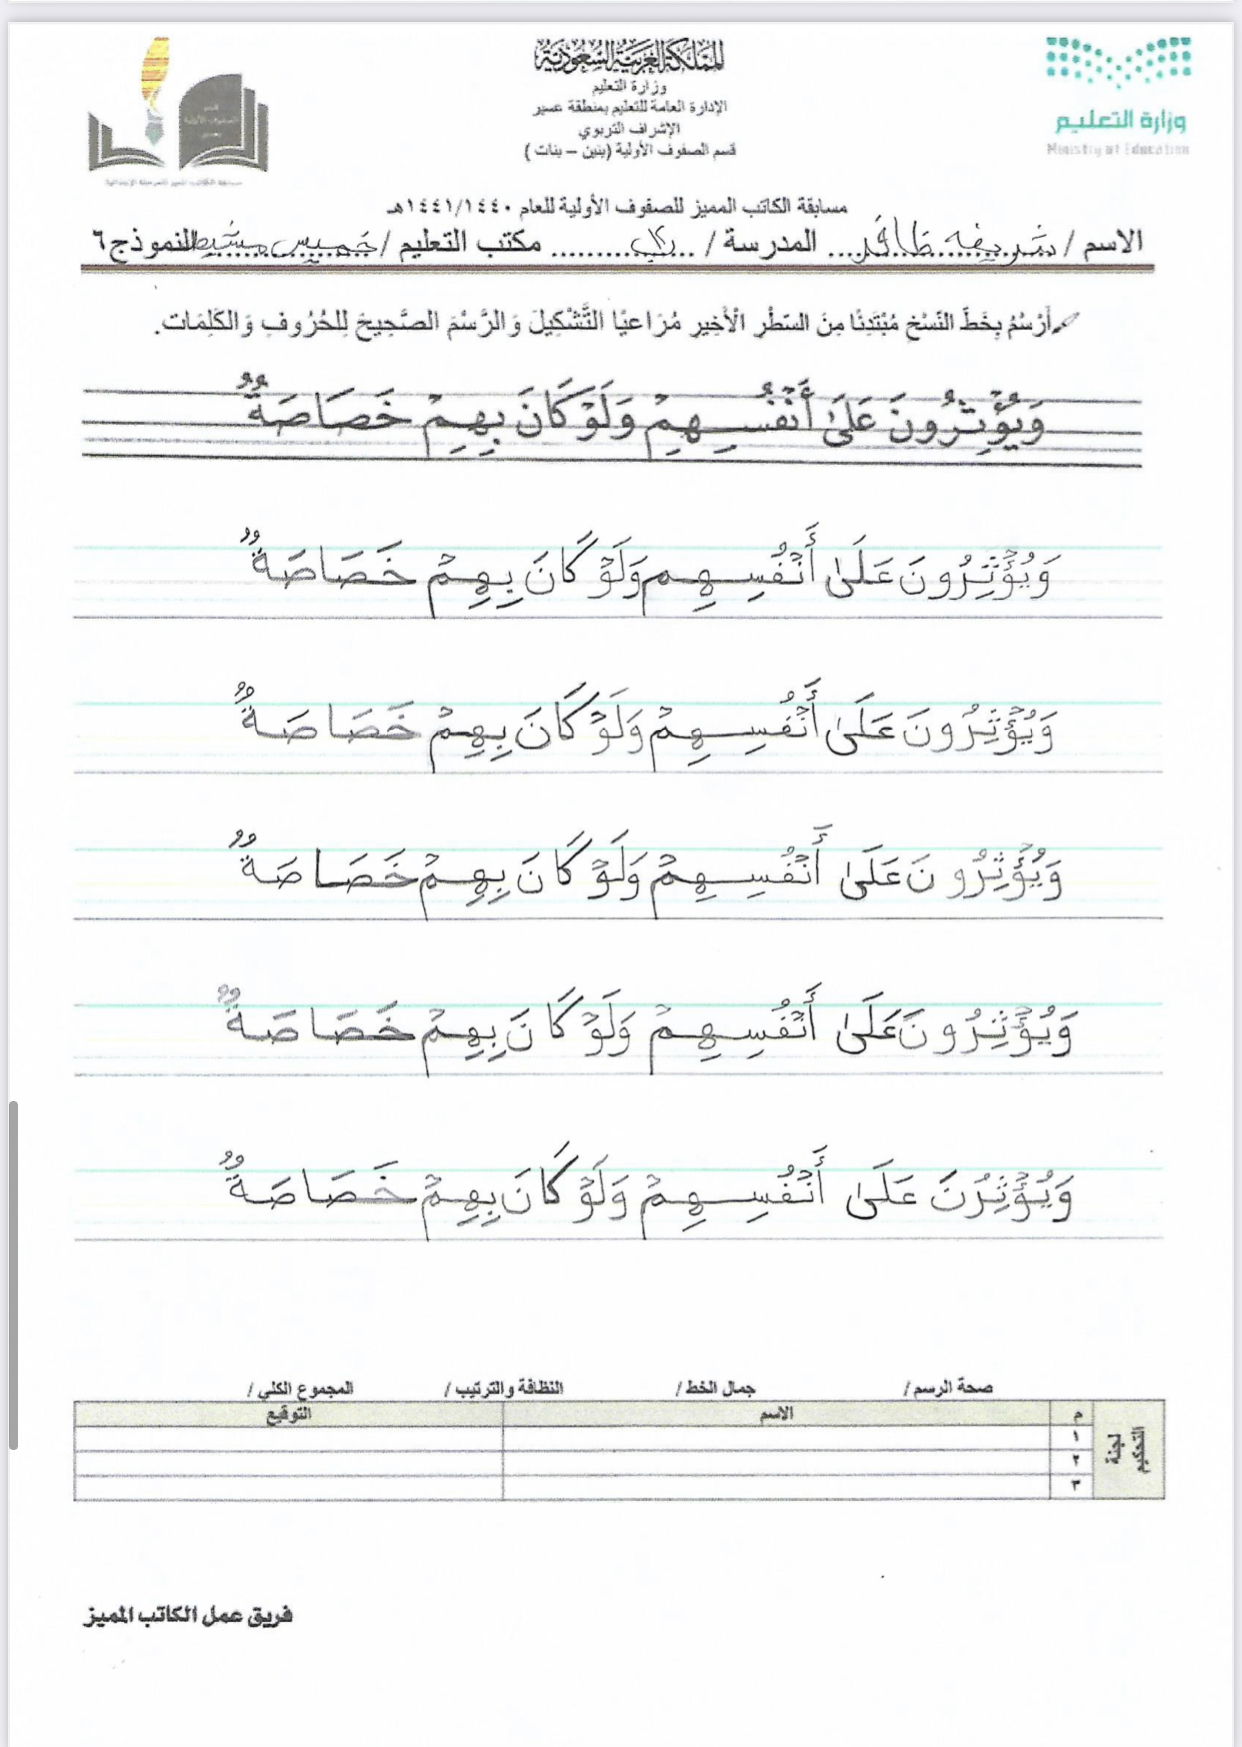 المملكة العربية السعودية
وزارة التعليم
الإدارة العامة للتعليم بمنطقة عسير
الإشراف التربوي
قسم الصفوف الأولية (بنين – بنات )
وزارة التعليم
Ministry of Education
مسابقة الكاتب المميز للصفوف الأولية للعام ١٤٤١/١٤٤٠هـ
الاسم / شريفه ظافر المدرسة / مكتب التعليم / خميس مشيط النموذج ٦
أَرْسُمُ بِخَطِّ النَّسْخِ مُبْتَدِئًا مِنَ السَّطْرِ الْأَخِيرِ مُرَاعِيًا التَّشْكِيلَ وَالرَّسْمَ الصَّحِيحَ لِلْحُرُوفِ وَالكَلِمَات.
وَيُؤْثِرُونَ عَلَىٰ أَنْفُسِهِمْ وَلَوْ كَانَ بِهِمْ خَصَاصَةٌ
وَيُؤْثِرُونَ عَلَىٰ أَنْفُسِهِم وَلَوْ كَانَ بِهِمْ خَصَاصَةٌ
وَيُؤْثِرُونَ عَلَىٰ أَنْفُسِهِمْ وَلَوْ كَانَ بِهِمْ خَصَاصَةٌ
وَيُؤْثِرُونَ عَلَىٰ أَنْفُسِهِمْ وَلَوْ كَانَ بِهِمْ خَصَاصَةٌ
وَيُؤْثِرُونَ عَلَىٰ أَنْفُسِهِمْ وَلَوْ كَانَ بِهِمْ خَصَاصَةٌ
وَيُؤْثِرُنَ عَلَىٰ أَنْفُسِهِمْ وَلَوْ كَانَ بِهِمْ خَصَاصَةٌ
صحة الرسم / جمال الخط / النظافة والترتيب / المجموع الكلي /
لجنة التحكيم م الاسم التوقيع
١
٢
٣
فريق عمل الكاتب المميز